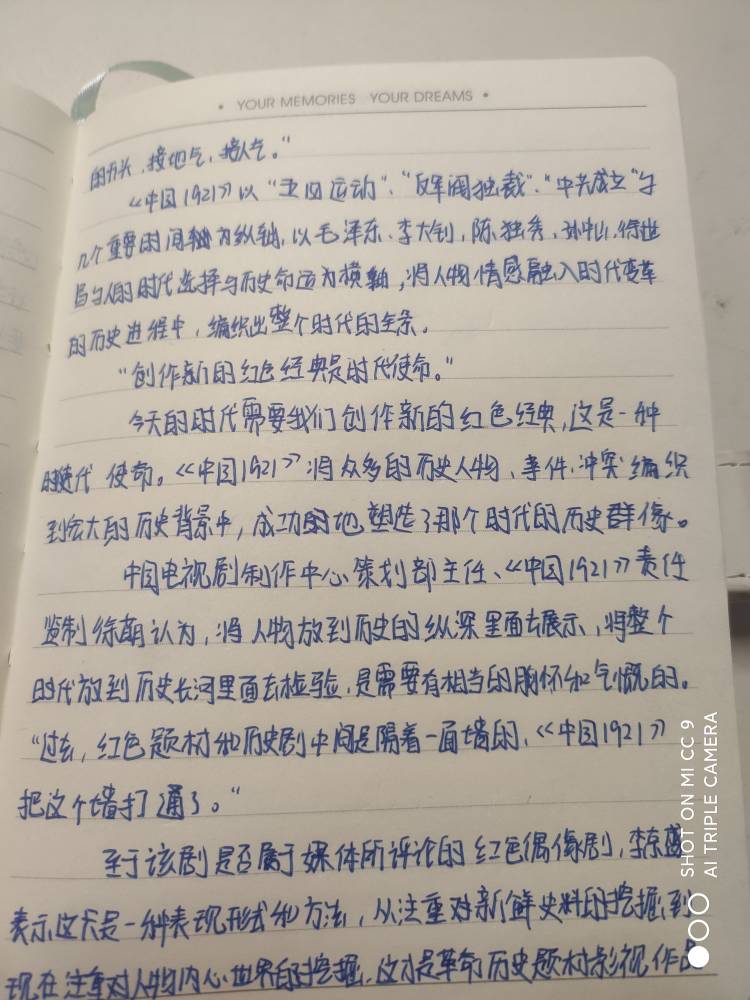 • YOUR MEMORIES YOUR DREAMS •
的历史，接地气，接人气。"
《中国1921》以"五四运动"、"反军阀独裁"、"中共成立"等
几个重要时间轴为纵轴，以毛泽东、李大钊，陈独秀，孙中山、徐世
昌与人的时代选择与历史命运为横轴，将人物情感融入时代变革
的历史进程中，编织出整个时代的全景。
"创作新的红色经典是时代使命。"
今天的时代需要我们创作新的红色经典，这是一种
时代使命。《中国1921》将众多的历史人物、事件、冲突编织
到宏大的历史背景中，成功的地塑造了那个时代的历史群像。
中国电视剧制作中心策划部主任、《中国1921》责任
监制徐萌认为，将人物放到历史的纵深里面去展示，将整个
时代放到历史长河里面去检验，是需要有相当的胸怀和气慨的。
"过去，红色题材和历史剧中间是隔着一面墙的，《中国1921》
把这个墙打通了。"
至于该剧是否属于媒体所评论的红色偶像剧，李东盛
表示这只是一种表现形式和方法，从注重对新鲜史料的挖掘，到
现在注重对人物内心世界的挖掘，这才是革命历史题材影视作品
SHOT ON MI CC 9
AI TRIPLE CAMERA